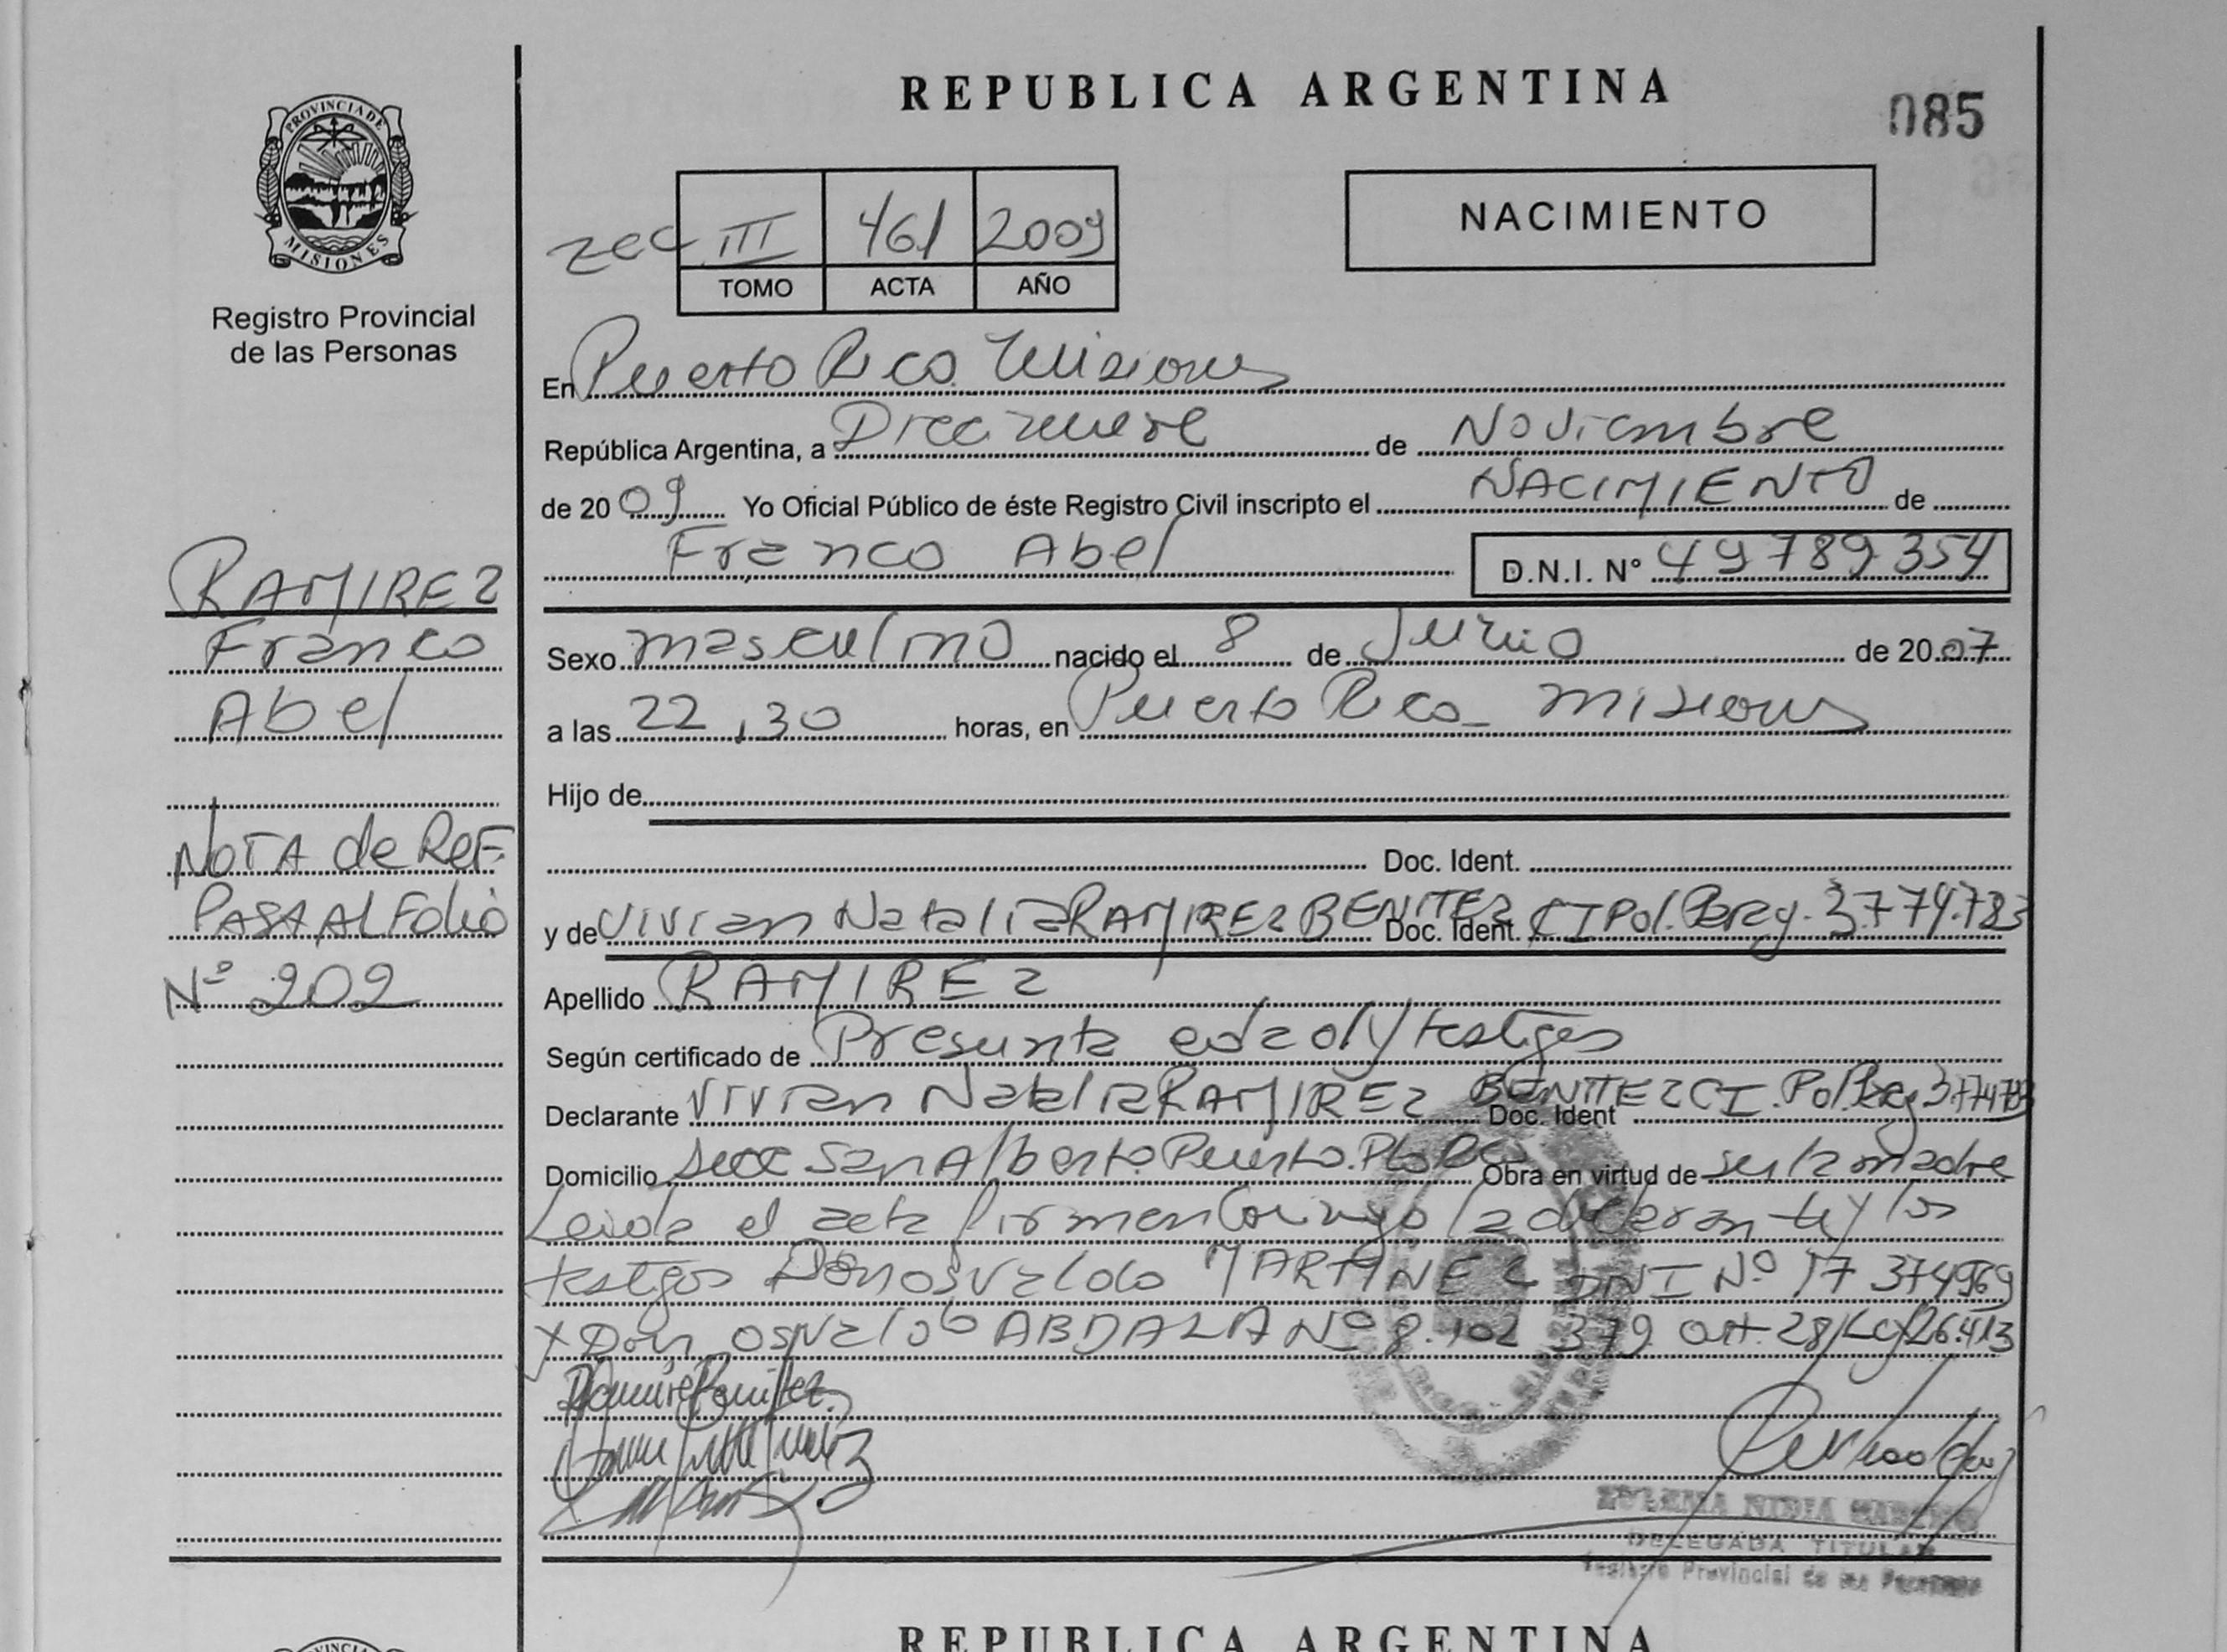 PROVINCIA DE
MISIONES
Registro Provincial
de las Personas
RAMIREZ
Franco
Abel
NOTA de REF.
PASA AL Folio
Nº 202
REPUBLICA ARGENTINA
085
NACIMIENTO
III 461 2009
TOMO ACTA AÑO
En Puerto Rico Misiones
República Argentina, a Diecinueve de Noviembre
de 2009 Yo Oficial Público de éste Registro Civil inscripto el NACIMIENTO de
Franco Abel D.N.I. Nº 49789354
Sexo masculino nacido el 8 de Junio de 2007
a las 22,30 horas, en Puerto Rico_ Misiones
Hijo de
Doc. Ident.
y de Vivian Natalia RAMIREZ BENITEZ Doc. Ident. CI Pol. Parag. 3.774.783
Apellido RAMIREZ
Según certificado de Presunta edad y testigos
Declarante Vivian Natalia RAMIREZ BENITEZ CI. Pol. Doc. Ident
Domicilio San Alberto. Puerto. Obra en virtud de ser la madre
Leida el acta firman conmigo la declarante y los
testigos Don Osvaldo MARTINEZ DNI Nº 17 374969
y Don Osvaldo ABDALA Nº 8.102 379 art. 28/Ley 26.413
Ramirez Benitez
ZULEMA NIDIA
DELEGADA TITULAR
Registro Provincial de las Personas
REPUBLICA ARGENTINA